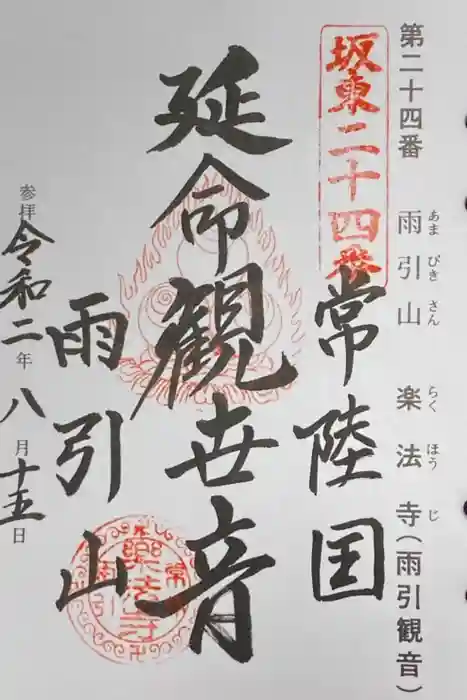 第二十四番 雨引山 楽法寺(雨引観音)
あま びき さん らく ほう じ
坂東二十四番
常陸国
延命観世音
雨引山
参拝 令和二年 八月十五日
楽法寺
常
雨引